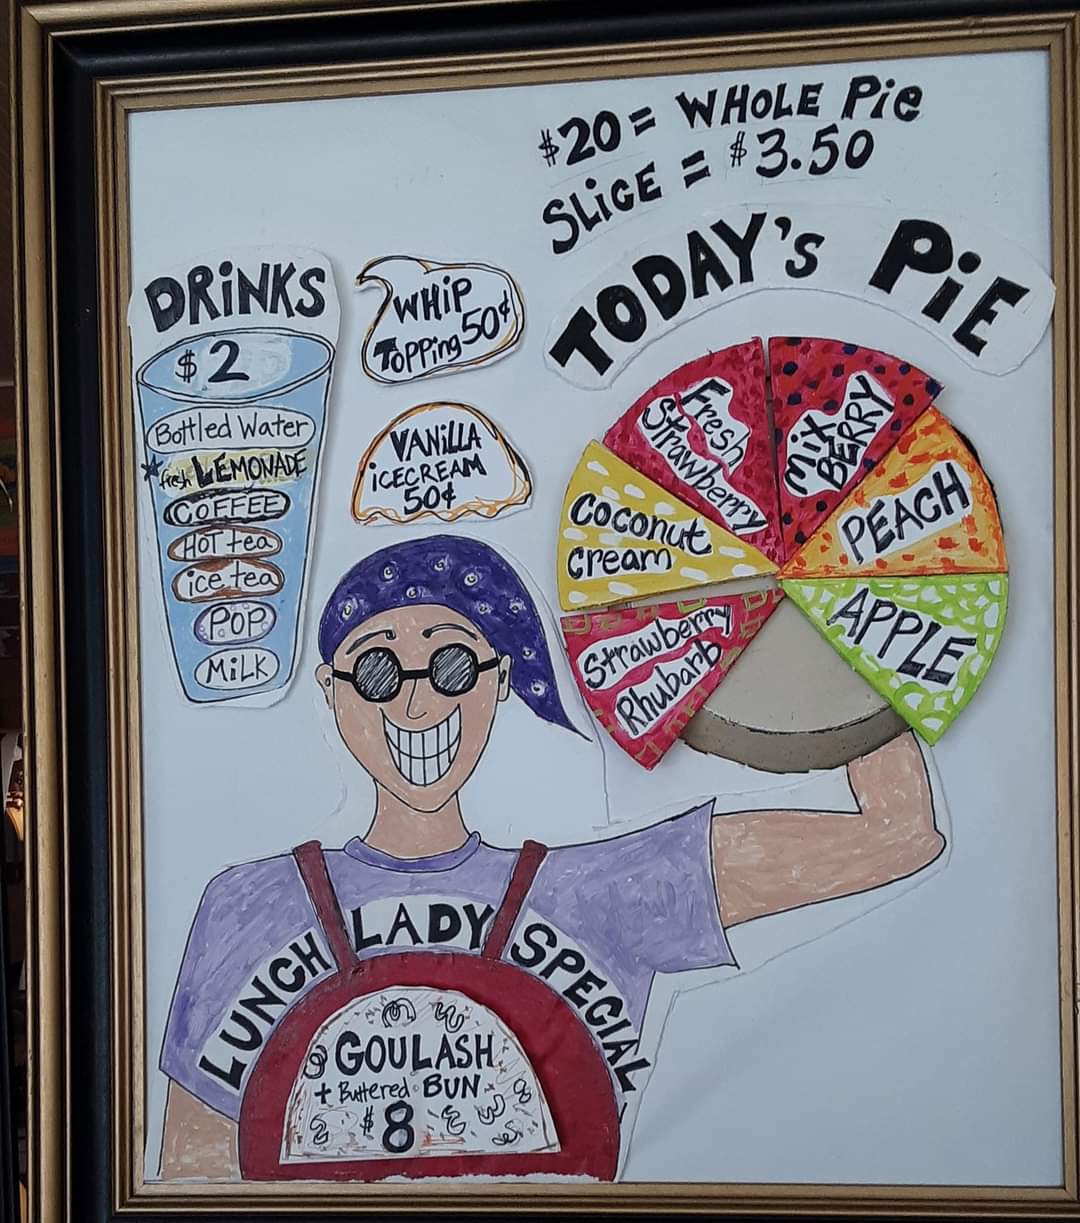 $20 = WHOLE Pie
SLiCE = $3.50
TODAY's PiE
DRiNKS
$2
Bottled Water
*fresh LEMONADE
COFFEE
HOT tea
ice tea
POP
MiLK
WHiP
TOPPing 50¢
VANiLLA
iCECREAM
50¢
Fresh
Strawberry
Mix
BERRY
PEACH
APPLE
Coconut
Cream
Strawberry
Rhubarb
LUNCH LADY SPECIAL
GOULASH
+ Buttered BUN
$8